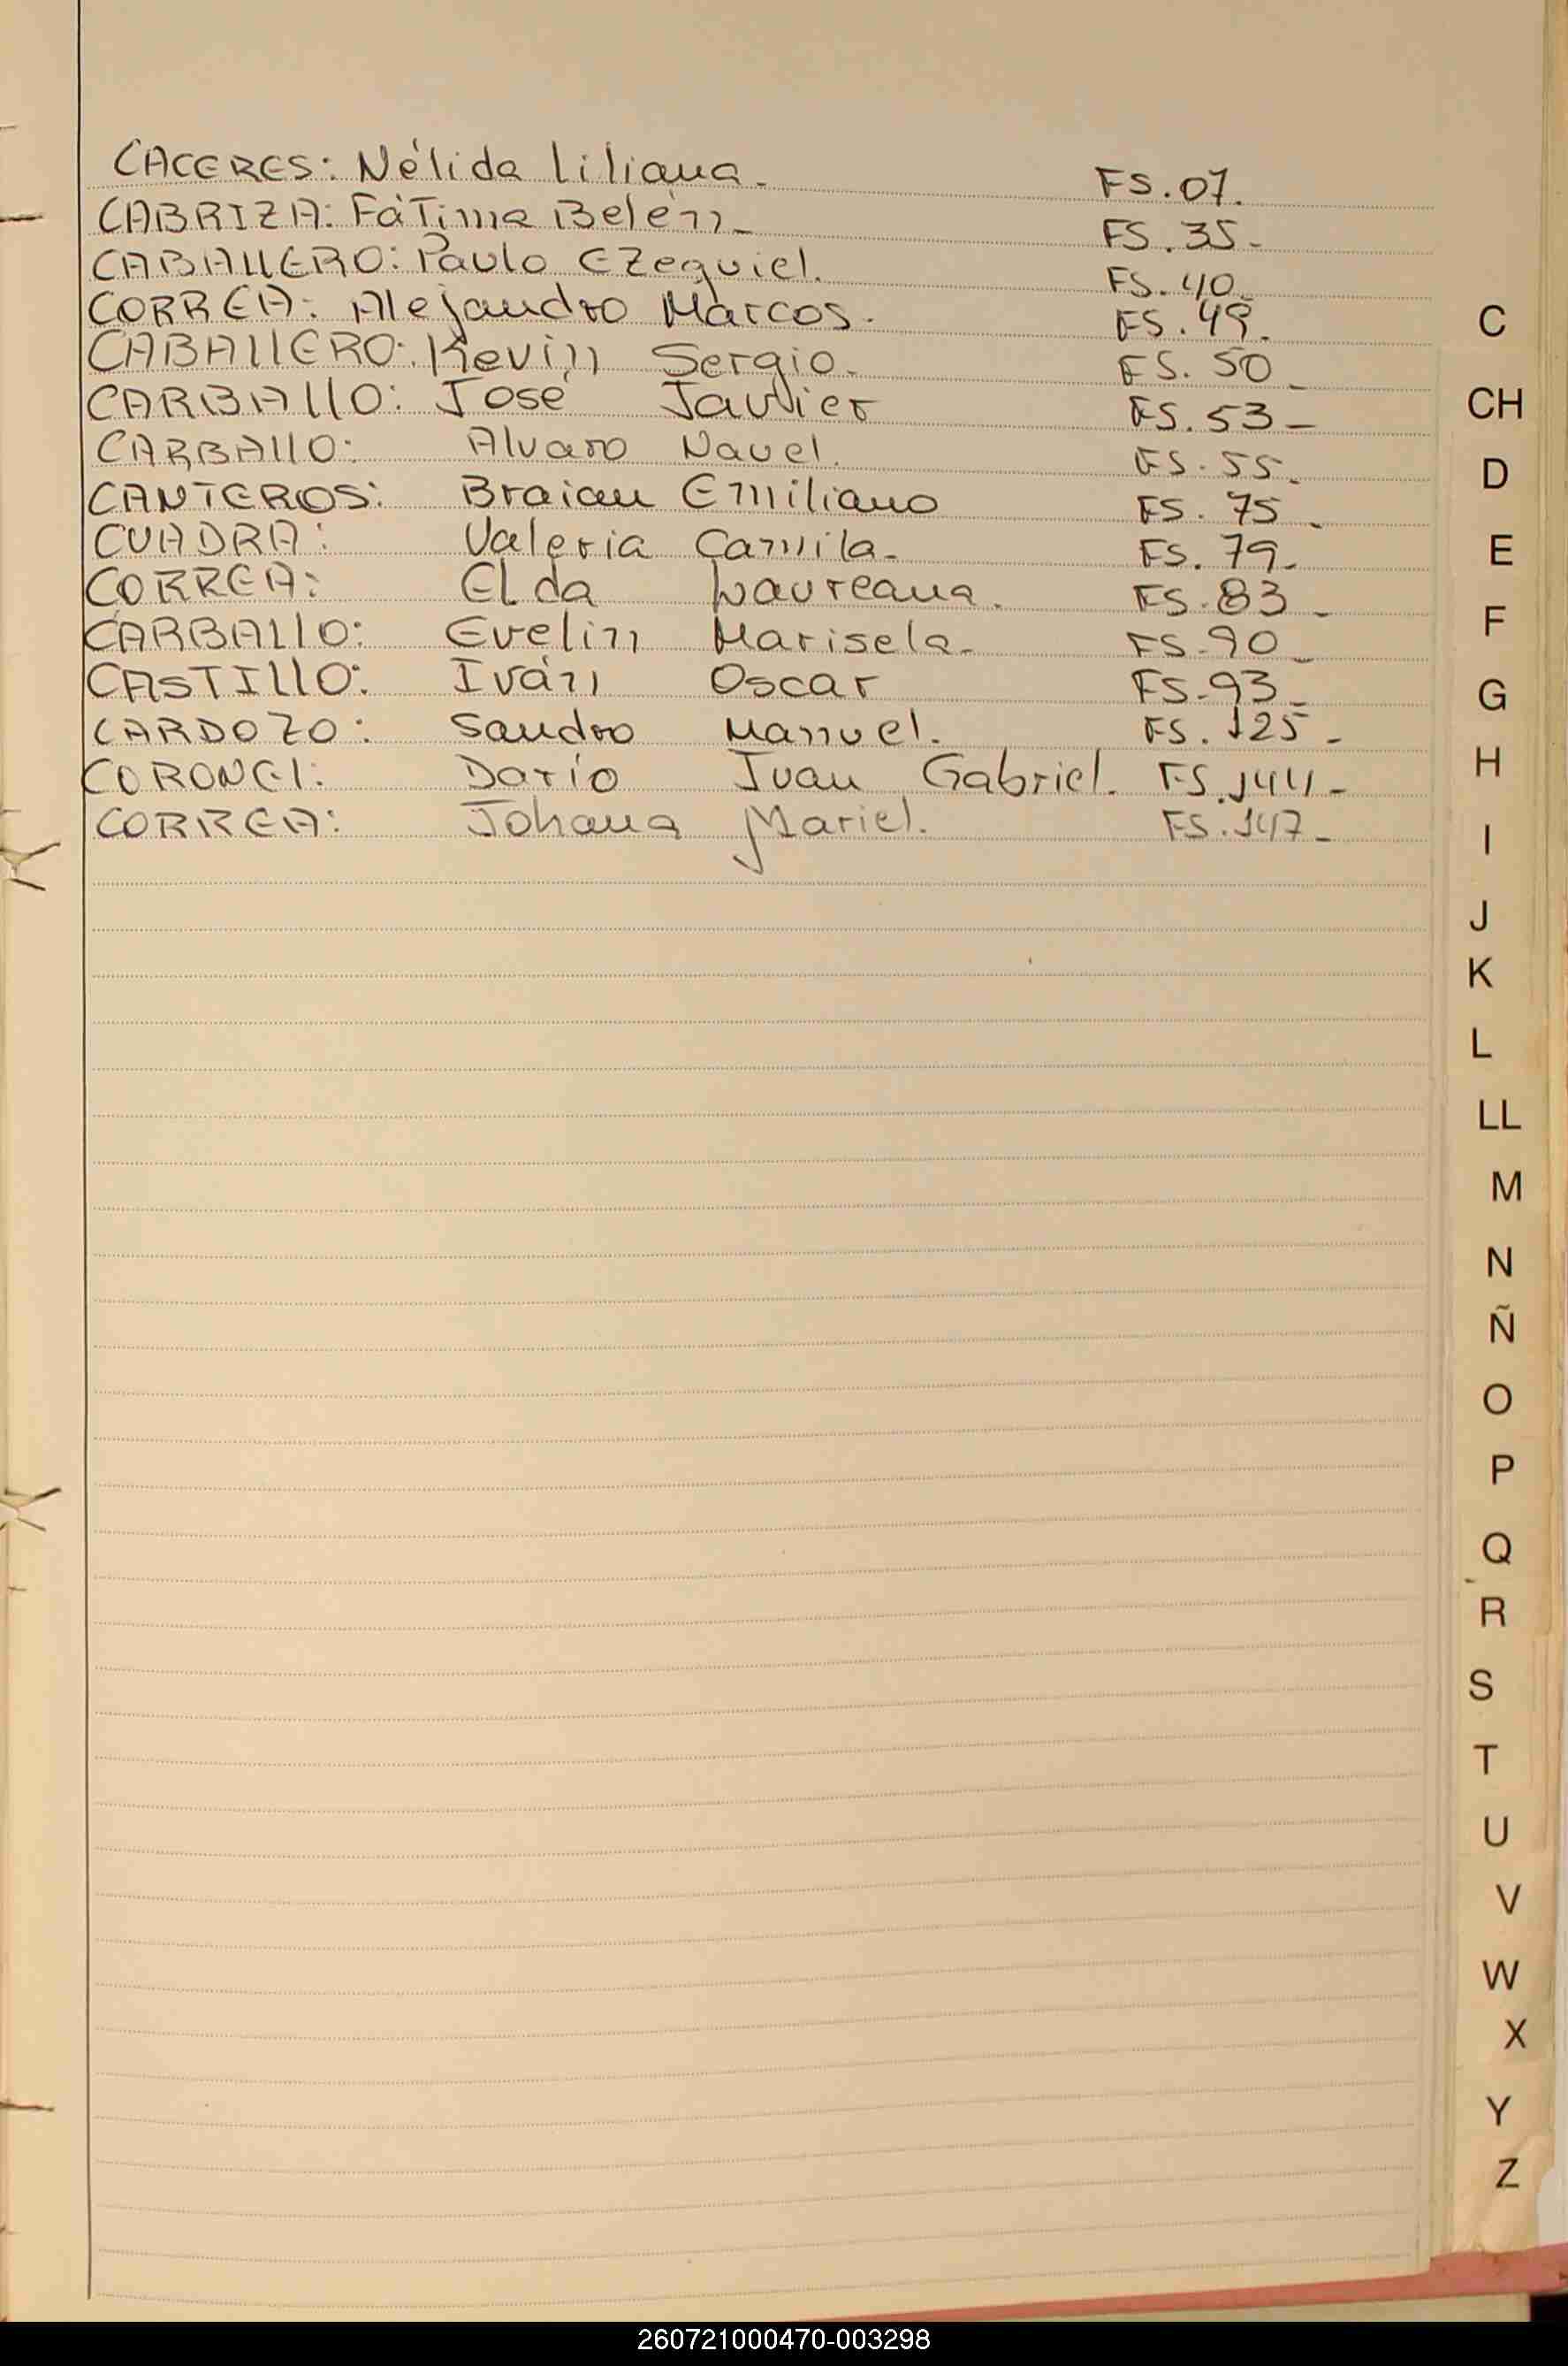 CACERES: Nélida Liliana. FS. 07.
CABRIZA: FáTima Belén. FS. 35-
CABALLERO: Paulo EZequiel. FS. 40-
CORREA: Alejandro Marcos. FS. 49.
CABALLERO: Kevin Sergio. FS. 50-
CARBALLO: José Javier FS. 53-
CARBALLO: Alvaro Nauel. FS. 55-
CANTEROS: Braian Emiliano FS. 75-
CUADRA: Valeria Camila- FS. 79-
CORREA: Elda Laureana. FS. 83-
CARBALLO: Evelin Marisela- FS. 90-
CASTILLO: Iván Oscar FS. 93-
CARDOZO: Sandro Manuel. FS. 125-
CORONEL: Darío Juan Gabriel. FS. 144-
CORREA: Johana Mariel. FS. 147-
C
CH
D
E
F
G
H
I
J
K
L
LL
M
N
Ñ
O
P
Q
R
S
T
U
V
W
X
Y
Z
260721000470-003298